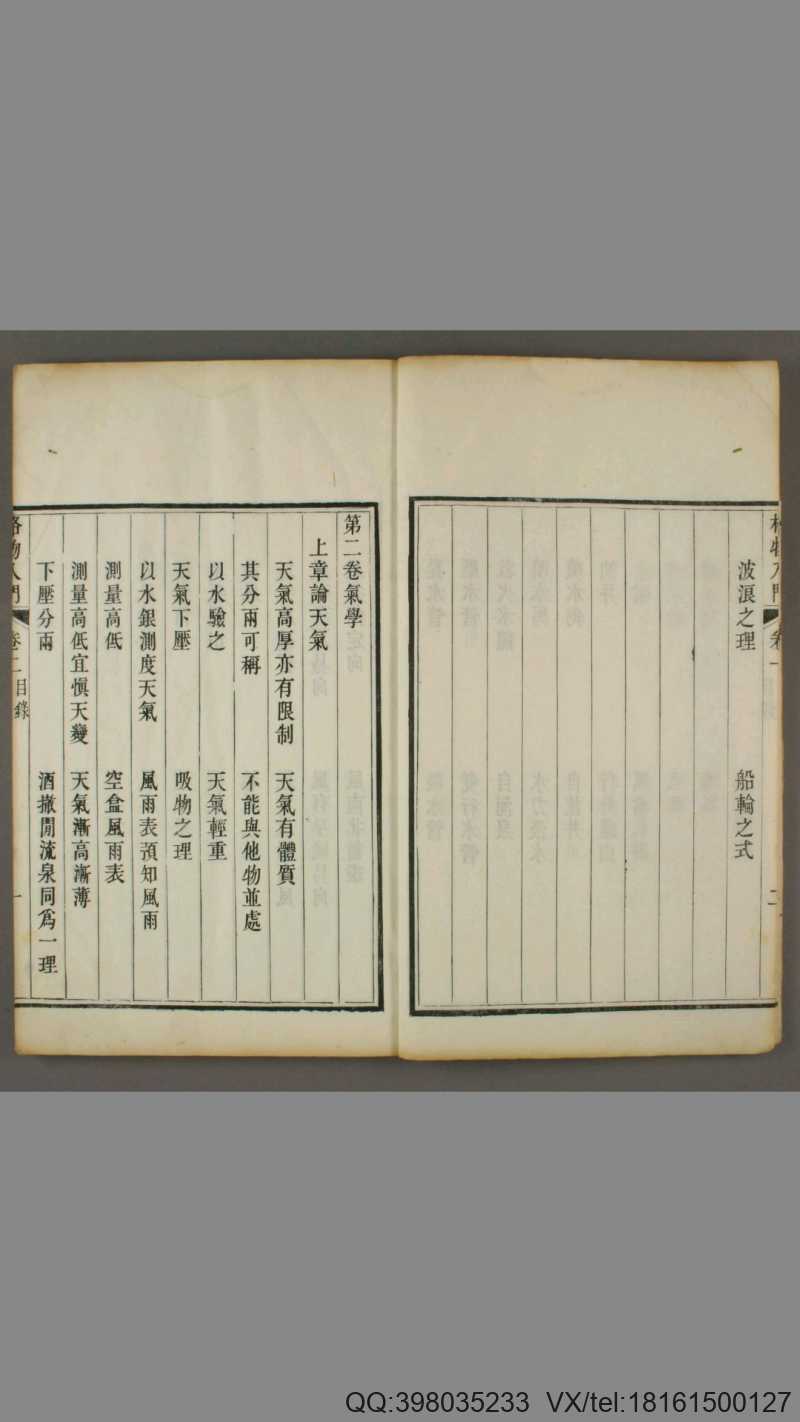 格物入門 卷一 二
波浪之理 船輪之式
第二卷氣學
上章論天氣
天氣高厚亦有限制 天氣有體質
其分兩可稱 不能與他物並處
以水驗之 天氣輕重
天氣下壓 吸物之理
以水銀測度天氣 風雨表預知風雨
測量高低 空盒風雨表
測量高低宜慎天變 天氣漸高漸薄
下壓分兩 酒撤閒流泉同爲一理
格物入門 卷二目錄 一
QQ:398035233 VX/tel:18161500127